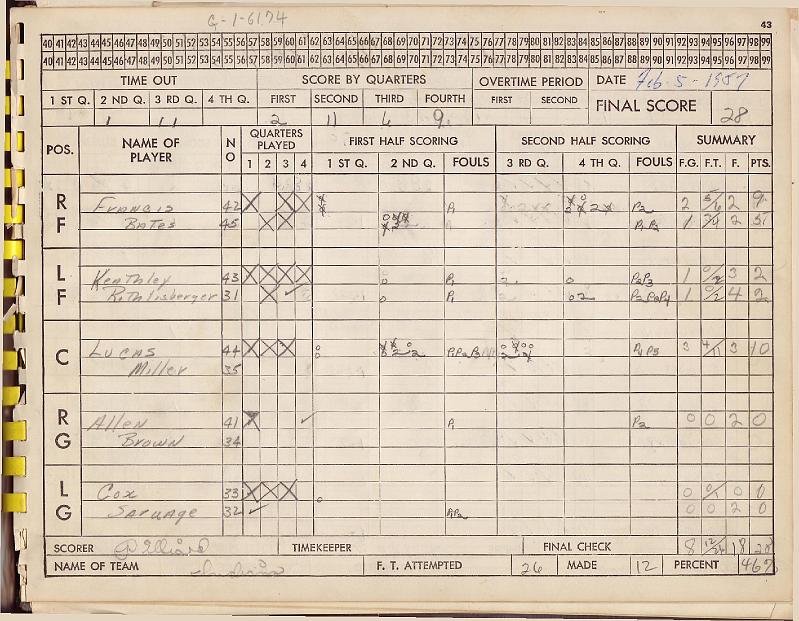 G-1-6174
43
40 41 42 43 44 45 46 47 48 49 50 51 52 53 54 55 56 57 58 59 60 61 62 63 64 65 66 67 68 69 70 71 72 73 74 75 76 77 78 79 80 81 82 83 84 85 86 87 88 89 90 91 92 93 94 95 96 97 98 99
40 41 42 43 44 45 46 47 48 49 50 51 52 53 54 55 56 57 58 59 60 61 62 63 64 65 66 67 68 69 70 71 72 73 74 75 76 77 78 79 80 81 82 83 84 85 86 87 88 89 90 91 92 93 94 95 96 97 98 99
TIME OUT SCORE BY QUARTERS OVERTIME PERIOD DATE Feb-5-1957
1 ST Q. 2 ND Q. 3 RD Q. 4 TH Q. FIRST SECOND THIRD FOURTH FIRST SECOND FINAL SCORE
1 11 2 11 6 9 28
POS. NAME OF PLAYER NO QUARTERS PLAYED FIRST HALF SCORING SECOND HALF SCORING SUMMARY
1 2 3 4 1 ST Q. 2 ND Q. FOULS 3 RD Q. 4 TH Q. FOULS F.G. F.T. F. PTS.
RF Francis 42 X X X P1 P2 2 5/6 2 9
Bates 45 X X 1 2 5
LF Keathley 43 X X X X 0 P1 2 0 P2P3 1 3 2
Rothlisberger 31 X ✓ 0 P1 02 P2P3P4 1 0/2 4 2
C Lucas 44 X X X P1P2P3 P4P5 3 4/11 3 10
Miller 35
RG Allen 41 X ✓ P1 P2 0 0 2 0
Brown 34
LG Cox 33 X X X 0 0 0/1 0 0
Sarvage 32 ✓ P1P2 0 0 2 0
SCORER TIMEKEEPER FINAL CHECK 8 18 28
NAME OF TEAM F. T. ATTEMPTED 26 MADE 12 PERCENT 467